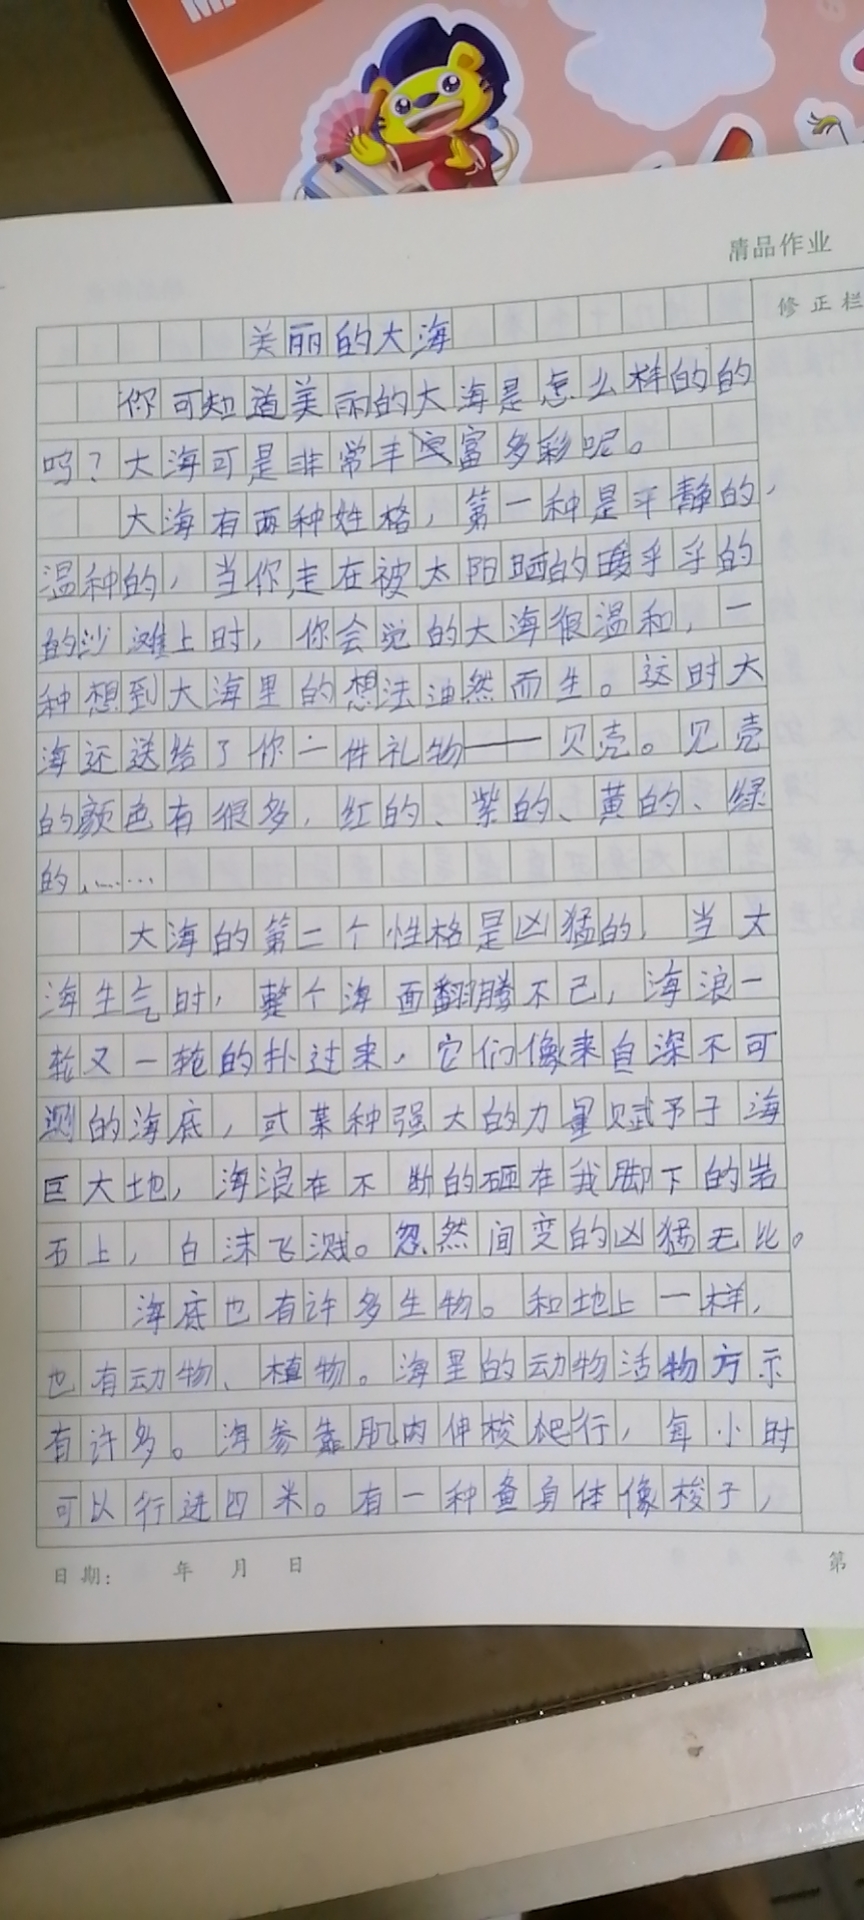 清品作业
修正栏
美丽的大海
你可知道美丽的大海是怎么样的的
吗？大海可是非常丰富多彩呢。
大海有两种姓格，第一种是平静的，
温种的，当你走在被太阳晒的暖乎乎的
的沙滩上时，你会觉的大海很温和，一
种想到大海里的想法油然而生。这时大
海还送给了你一件礼物——贝壳。见壳
的颜色有很多，红的、紫的、黄的、绿
的，……
大海的第二个性格是凶猛的，当大
海生气时，整个海面翻腾不己，海浪一
轮又一轮的扑过来，它们像来自深不可
测的海底，或某种强大的力量赋予于海
巨大地，海浪在不断的砸在我脚下的岩
石上，白沫飞溅。忽然间变的凶猛无比。
海底也有许多生物。和地上一样，
也有动物、植物。海里的动物活物方示
有许多。海参靠肌肉伸梭爬行，每小时
可以行进四米。有一种鱼身体像梭子，
日期： 年 月 日
第